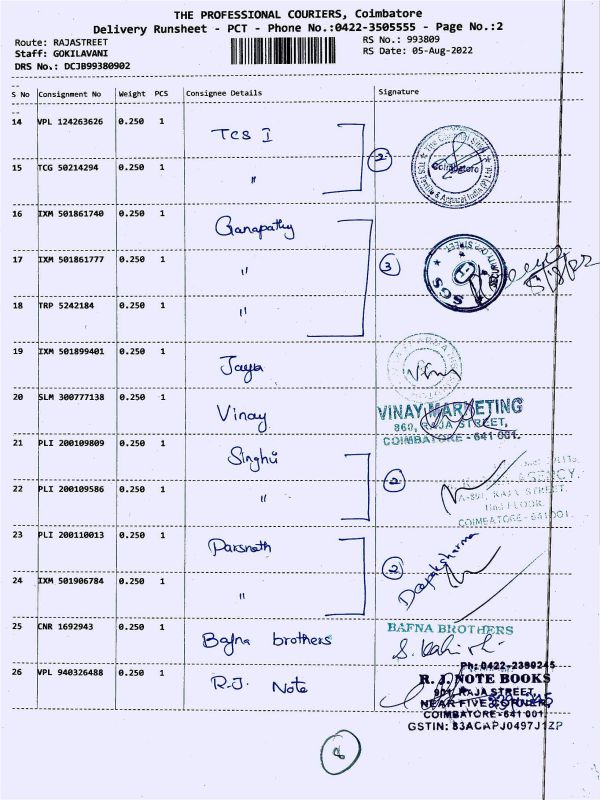 THE PROFESSIONAL COURIERS, Coimbatore
Delivery Runsheet - PCT - Phone No.:0422-3505555 - Page No.:2
Route: RAJASTREET
RS No.: 993809
Staff: GOKILAVANI
RS Date: 05-Aug-2022
DRS No.: DCJB99380902
S No Consignment No Weight PCS Consignee Details Signature
14 VPL 124263626 0.250 1 TCS I
15 TCG 50214294 0.250 1 "
2
Coimbatore
16 IXM 501861740 0.250 1 Ganapathy
17 IXM 501861777 0.250 1 "
3
SGS
5/8/22
18 TRP 5242184 0.250 1 "
19 IXM 501899401 0.250 1 Jaya
20 SLM 300777138 0.250 1 Vinay
VINAY MARKETING
860, RAJA STREET,
COIMBATORE - 641 001.
21 PLI 200109809 0.250 1 Singhvi
22 PLI 200109586 0.250 1 "
2
AGENCY.
RAJA STREET.
IInd FLOOR.
COIMBATORE - 641001.
23 PLI 200110013 0.250 1 Parsnath
24 IXM 501906784 0.250 1 "
2
Deepaksharma
25 CNR 1692943 0.250 1 Bafna brothers
BAFNA BROTHERS
26 VPL 940326488 0.250 1 R.J. Note
Ph: 0422-2390245
R. J. NOTE BOOKS
901, RAJA STREET,
NEAR FIVE CORNER,
COIMBATORE-641 001.
GSTIN: 33ACAPJ0497J1ZP
8